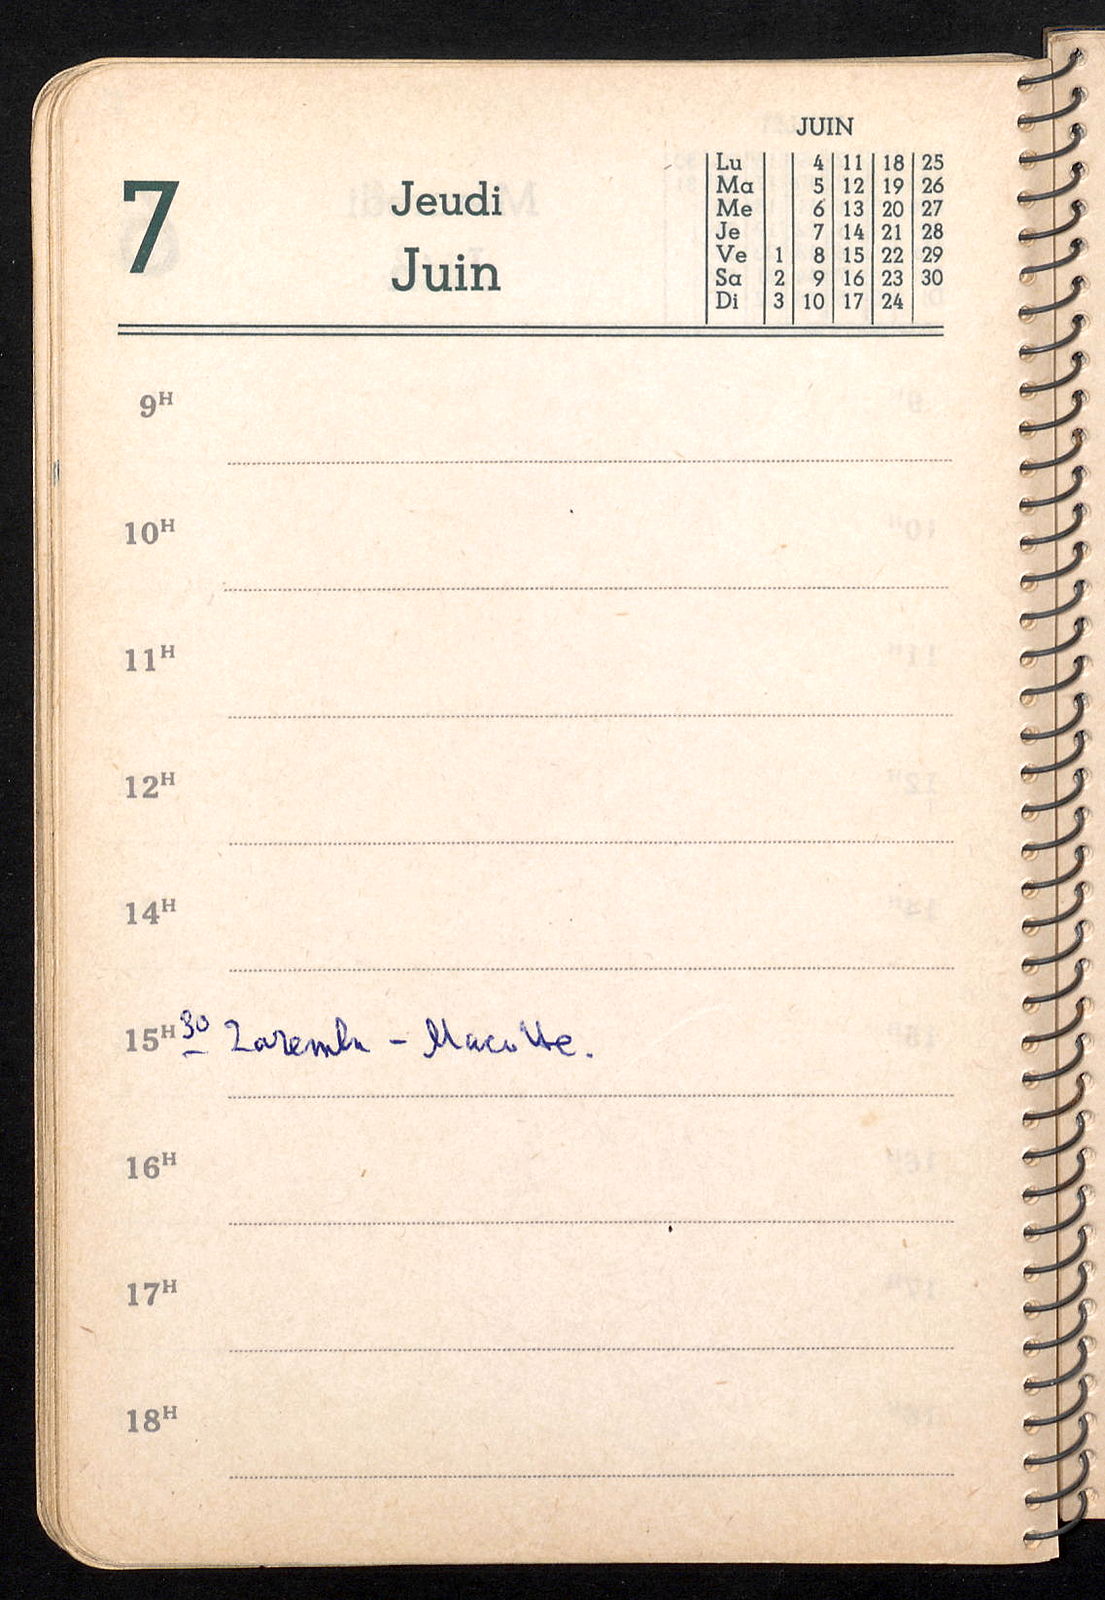 7
Jeudi
Juin
JUIN
Lu 4 11 18 25
Ma 5 12 19 26
Me 6 13 20 27
Je 7 14 21 28
Ve 1 8 15 22 29
Sa 2 9 16 23 30
Di 3 10 17 24
9H
10H
11H
12H
14H
15H 30 Zaremba -
16H
17H
18H